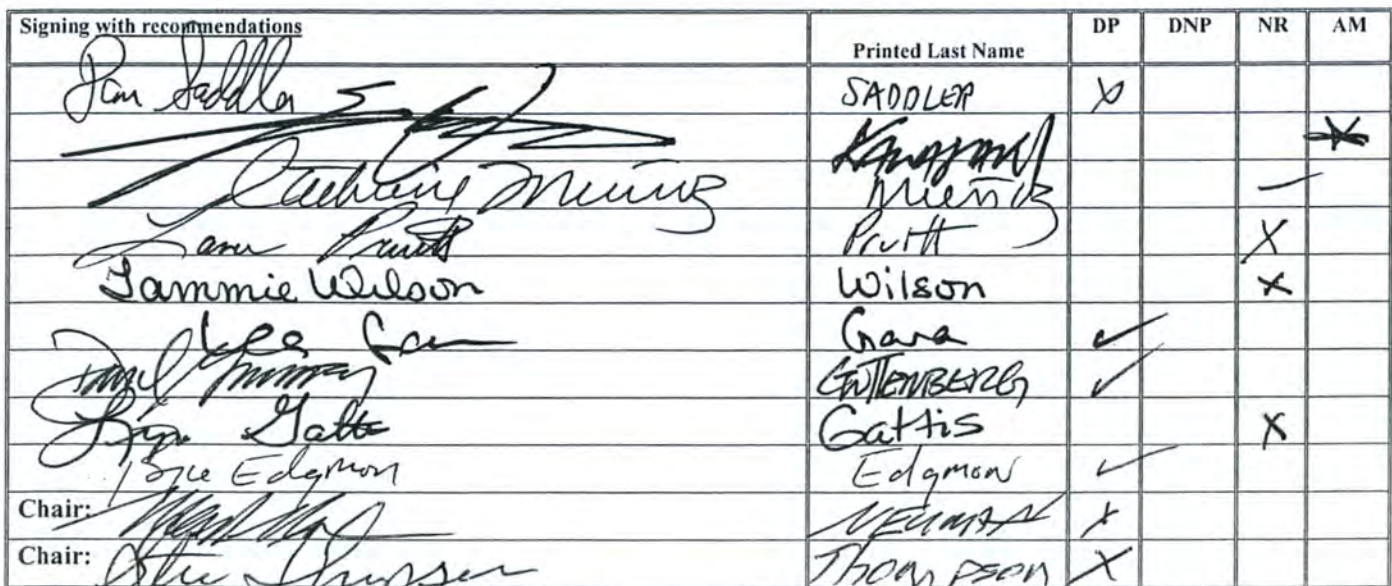 Signing with recommendations Printed Last Name DP DNP NR AM
Pam Saddler SADDLER X
X
Cathy Muñoz Muñoz ✓
Lance Pruitt Pruitt X
Tammie Wilson Wilson X
Les Gara Gara ✓
GUTTENBERG ✓
Lynn Gattis Gattis X
Bryce Edgmon Edgmon ✓
Chair: NEUMAN X
Chair: Steve Thompson Thompson X